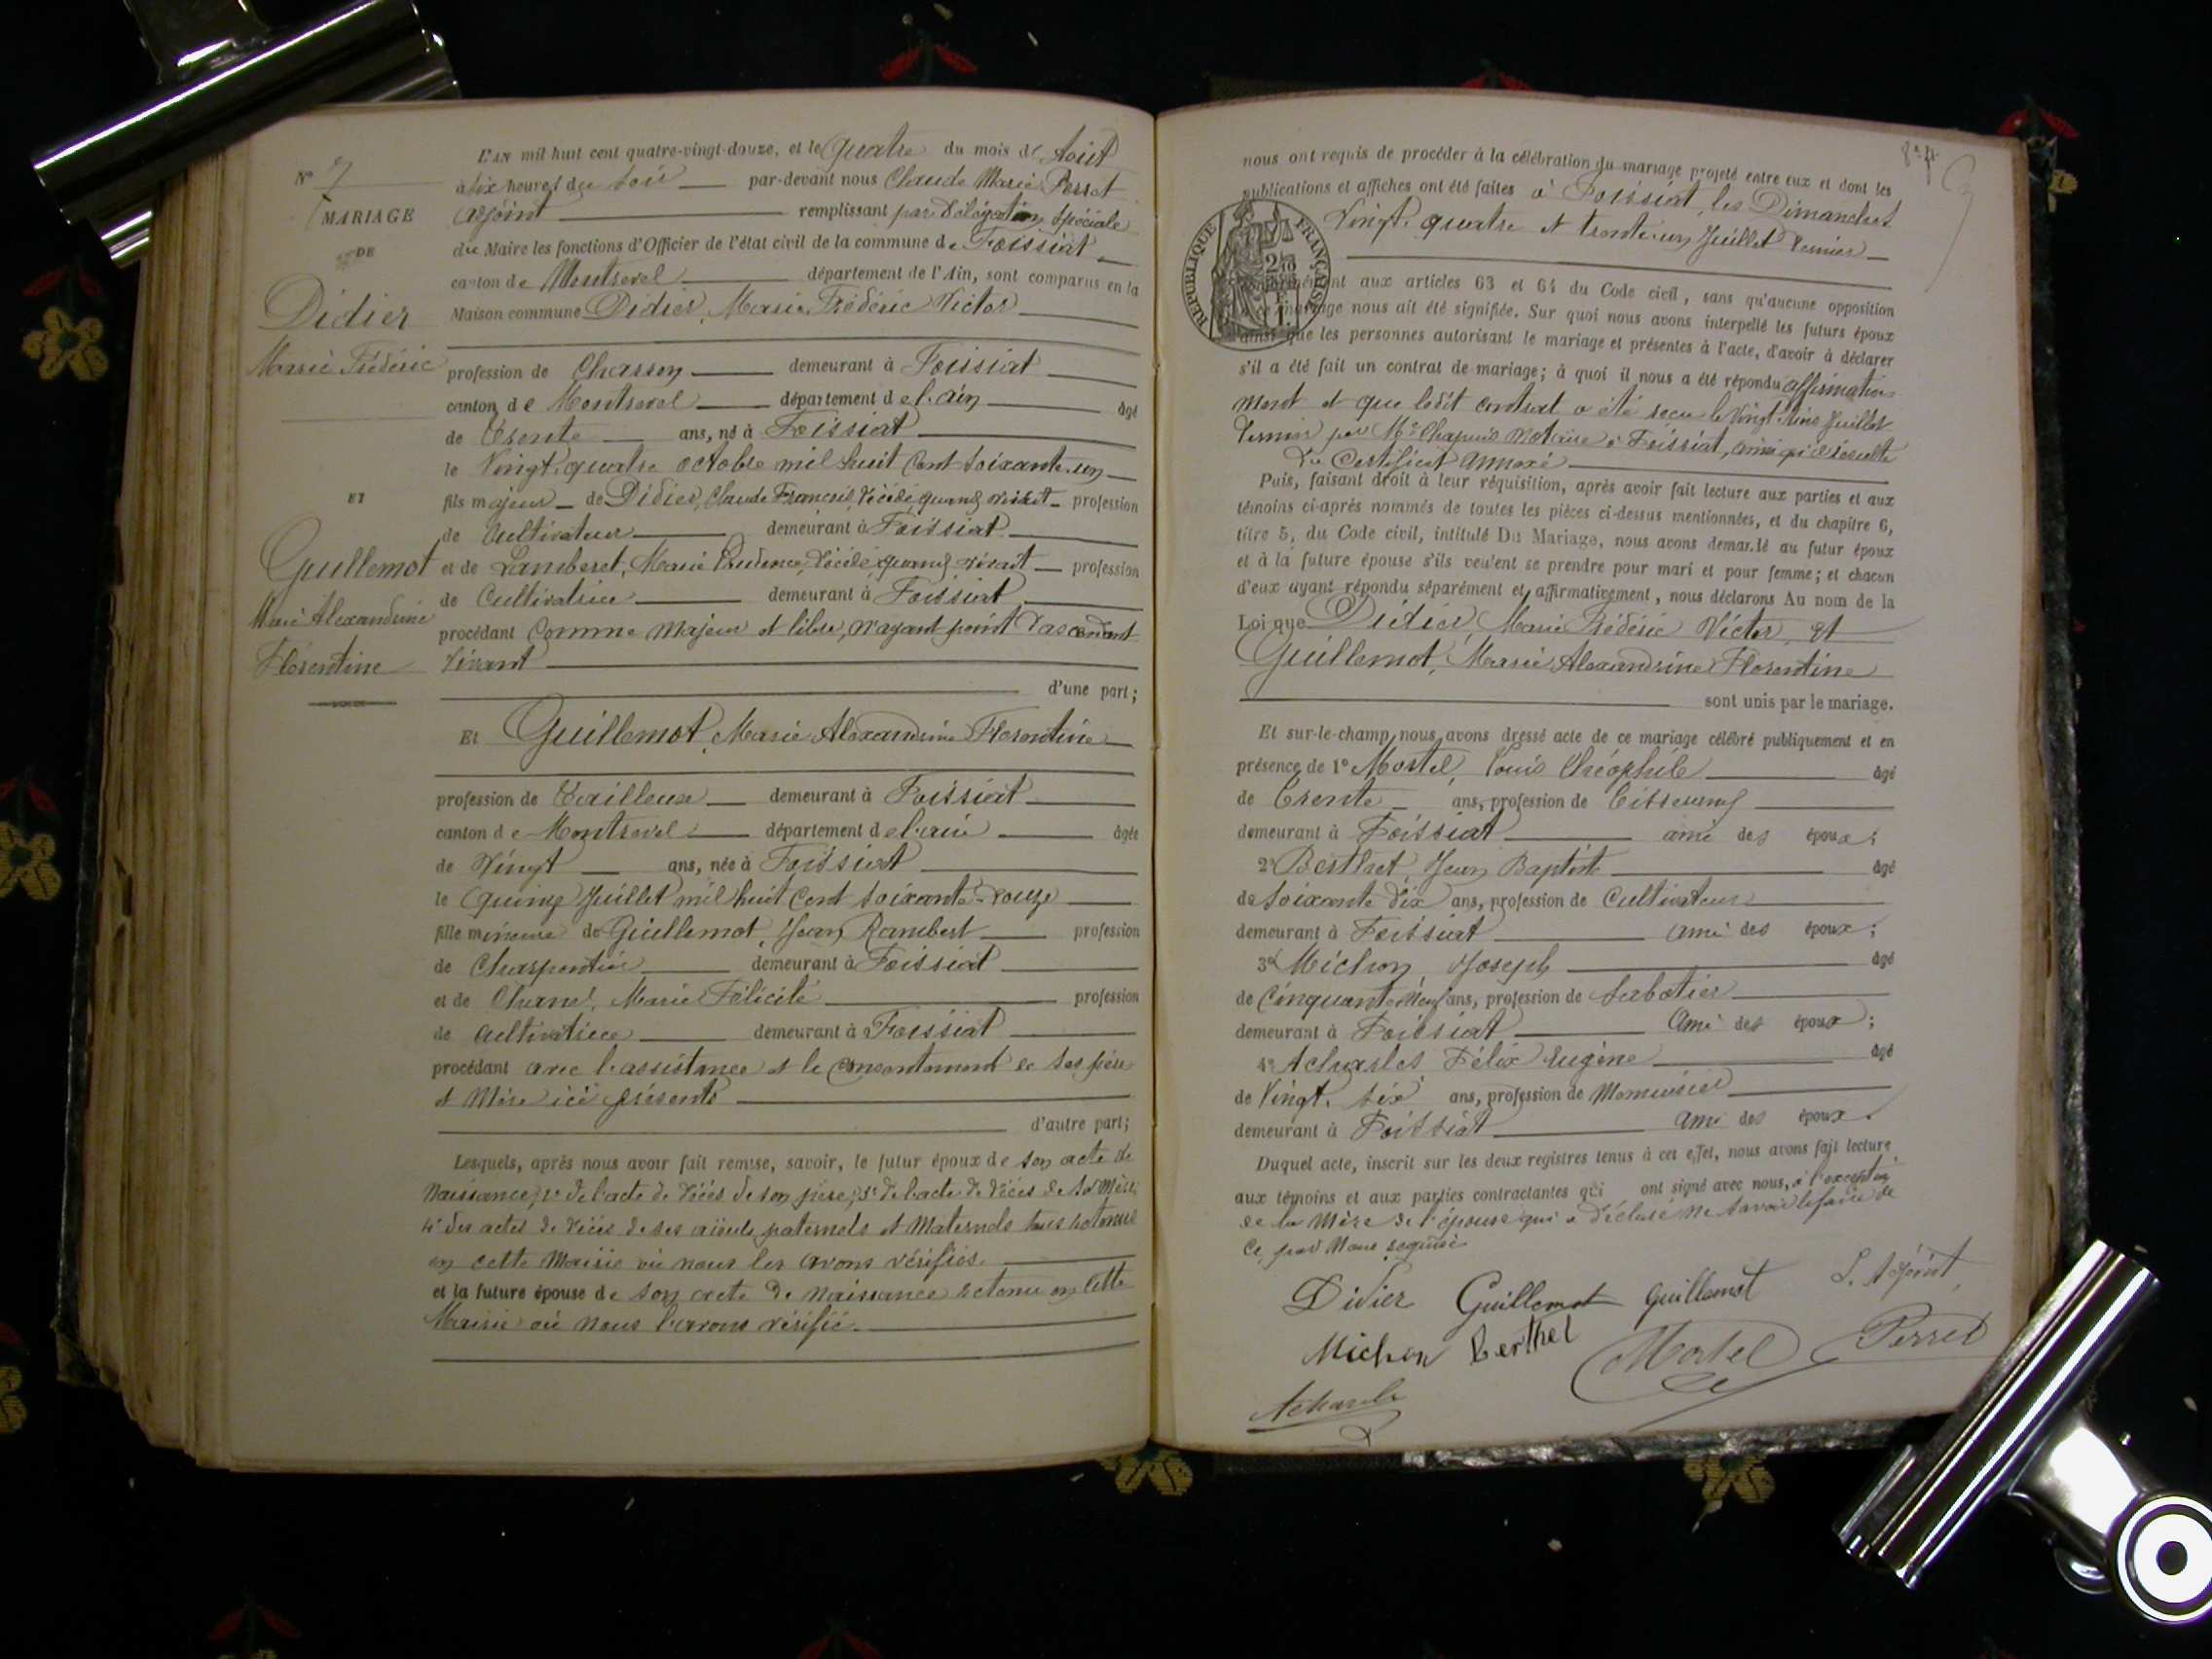 N° 7
MARIAGE
DE
Didier
Marie Frédéric
ET
Guillemot
Marie Alexandrine
Florentine
L'AN mil huit cent quatre-vingt-douze, et le quatre du mois d' Août
à six heures du soir par-devant nous Claude Marie Perret
adjoint remplissant par Délégation Spéciale
du Maire les fonctions d'Officier de l'état civil de la commune de Foissiat
canton de Montrevel département de l'Ain, sont comparus en la
Maison commune Didier, Marie Frédéric Victor
profession de Charron demeurant à Foissiat
canton de Montrevel département de l'ain âgé
de Trente ans, né à Foissiat
le Vingt-quatre octobre mil huit Cent soixante-un
fils majeur de Didier, Claude François, Décédé, quand vivait profession
de Cultivateur demeurant à Foissiat
et de Lamberet, Marie Prudence, Décédé quand vivait profession
de Cultivatrice demeurant à Foissiat
procédant Comme Majeur et libre, n'ayant point d'ascendant
vivant
d'une part;
Et Guillemot, Marie Alexandrine Florentine
profession de Tailleuse demeurant à Foissiat
canton de Montrevel département de l'ain âgée
de Vingt ans, née à Foissiat
le Quinze Juillet mil huit Cent soixante-douze
fille mineure de Guillemot, Jean Rambert profession
de Charpentier demeurant à Foissiat
et de Charnel, Marie Félicité profession
de Cultivatrice demeurant à Foissiat
procédant avec l'assistance et le Consentement de ses père
et Mère ici présents
d'autre part;
Lesquels, après nous avoir fait remise, savoir, le futur époux de son acte de
Naissance; 2° de l'acte de Décès de son père; 3° de l'acte de Décès de sa Mère;
4° des actes de Décès de ses aïeuls paternels et Maternels tous retenus
en cette Mairie où nous les avons vérifiés.
et la future épouse de son acte de Naissance retenu en cette
Mairie où nous l'avons vérifié.
nous ont requis de procéder à la célébration du mariage projeté entre eux et dont les
publications et affiches ont été faites à Foissiat, les Dimanches
Vingt-quatre et trente-un Juillet dernier
RÉPUBLIQUE FRANÇAISE
conformément aux articles 63 et 64 du Code civil, sans qu'aucune opposition
à ce mariage nous ait été signifiée. Sur quoi nous avons interpellé les futurs époux
ainsi que les personnes autorisant le mariage et présentes à l'acte, d'avoir à déclarer
s'il a été fait un contrat de mariage; à quoi il nous a été répondu affirmative-
ment et que ledit contrat a été reçu le Vingt-cinq Juillet
dernier par Me Chapuis Notaire à Foissiat, ainsi qu'il résulte
du Certificat Annexé
Puis, faisant droit à leur réquisition, après avoir fait lecture aux parties et aux
témoins ci-après nommés de toutes les pièces ci-dessus mentionnées, et du chapitre 6,
titre 5, du Code civil, intitulé Du Mariage, nous avons demandé au futur époux
et à la future épouse s'ils veulent se prendre pour mari et pour femme; et chacun
d'eux ayant répondu séparément et affirmativement, nous déclarons Au nom de la
Loi que Didier, Marie Frédéric Victor, Et
Guillemot, Marie Alexandrine Florentine
sont unis par le mariage.
Et sur-le-champ nous avons dressé acte de ce mariage célébré publiquement et en
présence de 1° Mortel, Louis Théophile âgé
de Trente ans, profession de Tisserand
demeurant à Foissiat ami des époux;
2° Berthet, Jean Baptiste âgé
de soixante Dix ans, profession de Cultivateur
demeurant à Foissiat Ami des époux;
3° Michon, Joseph âgé
de Cinquante-Neuf ans, profession de Sabotier
demeurant à Foissiat Ami des époux;
4° Acharles, Félix Eugène âgé
de Vingt-six ans, profession de Menuisier
demeurant à Foissiat Ami des époux.
Duquel acte, inscrit sur les deux registres tenus à cet effet, nous avons fait lecture
aux témoins et aux parties contractantes qui ont signé avec nous, à l'exception
de la Mère de l'épouse qui a déclaré ne savoir le faire de
Ce par Nous requise
Didier Guillemot Guillemot L'Adjoint
Michon Berthet Mortel Perret
Acharles